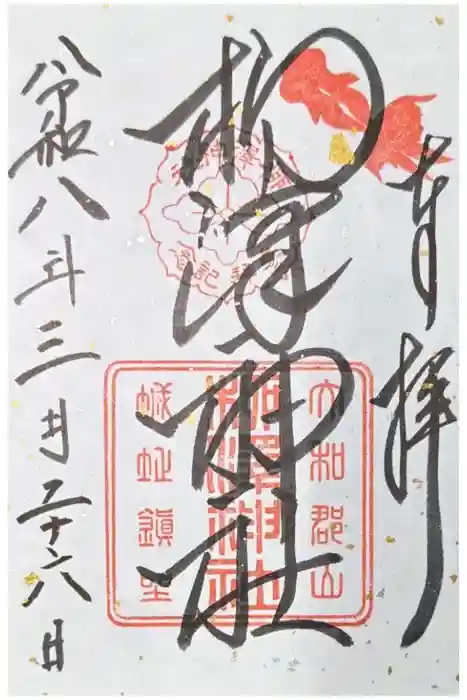 奉拝
柳澤神社
令和八年三月二十六日
大和郡山
城址鎮座